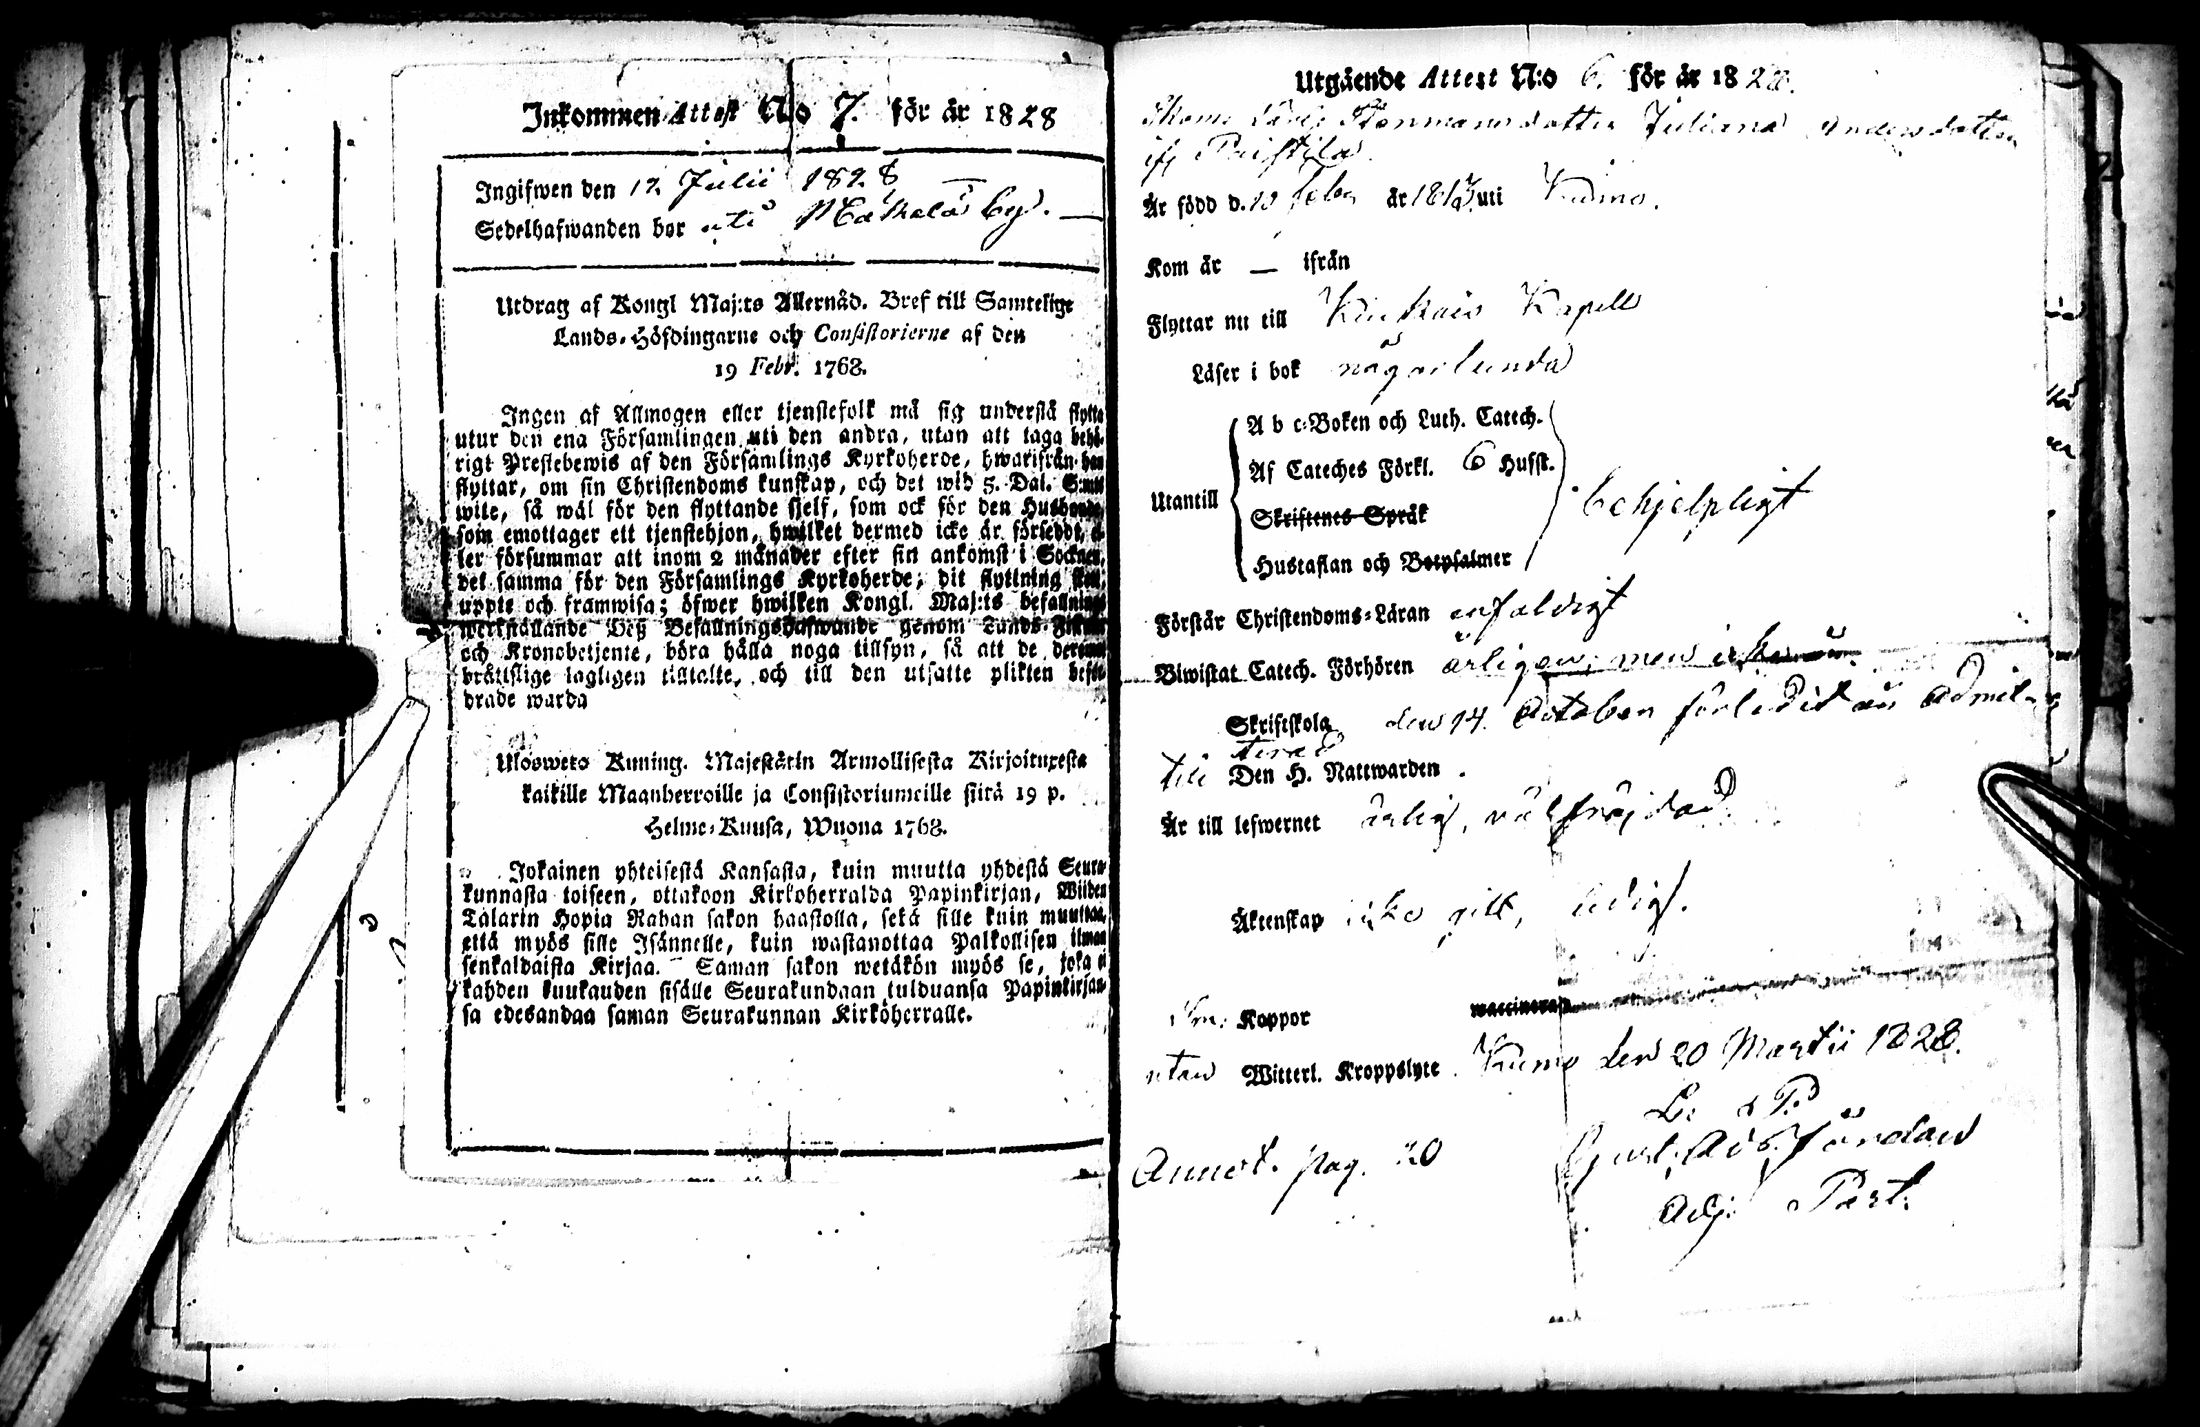 Inkommen Attest No 7. för år 1828
Ingifwen den 17. Julii 1828
Sedelhafwanden bor uti by.
Utdrag af Kongl Maj:ts Allernåd. Bref till Samtelige
Lands-Höfdingarne och Consistorierne af den
19 Febr. 1768.
Ingen af Allmogen eller tjenstefolk må sig understå flytta
utur den ena Församlingen uti den andra, utan att taga behö-
rigt Prestebewis af den Församlings Kyrkoherde, hwarifrån han
flyttar, om sin Christendoms kunskap, och det wid 5. Dal. S:mts
wite, så wäl för den flyttande sjelf, som ock för den Husbonde,
som emottager ett tjenstehjon, hwilket dermed icke är försedt, el-
ler försummar att inom 2 månader efter sin ankomst i Socknen,
det samma för den Församlings Kyrkoherde, dit flyttning sker,
uppte och framwisa; öfwer hwilken Kongl. Maj:ts befallning
werkställande Deß Befallningshafwande genom Lands-Fiskaler
och Kronobetjente, böra hålla noga tillsyn, så att de deremot
bråttslige lagligen tilltalte, och till den utsatte plikten befor-
drade warda
Ulosweto Kuning. Majestätin Armollisesta Kirjoituxesta
kaikille Maanherroille ja Consistoriumeille siitä 19 p.
Helme-Kuusa, Wuona 1768.
Jokainen yhteisestä Kansasta, kuin muutta yhdestä Seura-
kunnasta toiseen, ottakoon Kirkoherralda Papinkirjan, Wiiden
Talarin Hopia Rahan sakon haastolla, sekä sille kuin muuttaa,
että myös sille Isännelle, kuin wastanottaa Palkollisen ilman
senkaldaista Kirjaa. Saman sakon wetäkön myös se, joka ei
kahden kuukauden sisälle Seurakundaan tulduansa Papinkirjan-
sa edesandaa saman Seurakunnan Kirköherralle.
Utgående Attest N:o 6. för år 1828.
Juliana Andersdotter
ifr Paistila
Är född d. 10 Febr år uti Kumo.
Kom år — ifrån
Flyttar nu till Kapell
Läser i bok någorlunda
Utantill
A b c-Boken och Luth. Catech.
Af Cateches Förkl. 6 Husst.
Skriftenes Språk
Hustaflan och Botpsalmer
behjelpligt
Förstår Christendoms-Läran enfaldigt
Biwistat Catech. Förhören årligen, men
Skriftskola den 14. October förledit år admit-
terad
till Den H. Nattwarden.
Är till lefwernet ärlig, välfräjdad.
Äktenskap icke gift, ledig.
Koppor vaccinerad
utan Witterl. Kroppslyte Kumo den 20 Martii 1828.
Annot. pag. 20
Adj. Past.